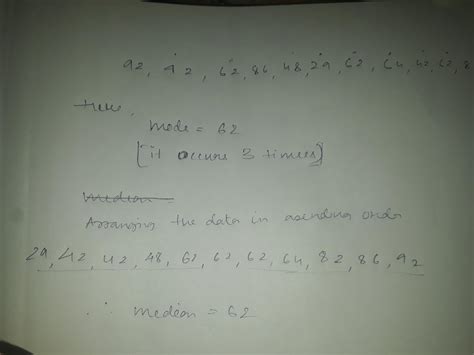 92, 42, 62, 86, 48, 29, 62, 64, 42, 62, 8
Here,
mode = 62
[it occurs 3 times]
Median
Arranging the data in asending order
29, 42, 42, 48, 62, 62, 62, 64, 82, 86, 92
∴ median = 62